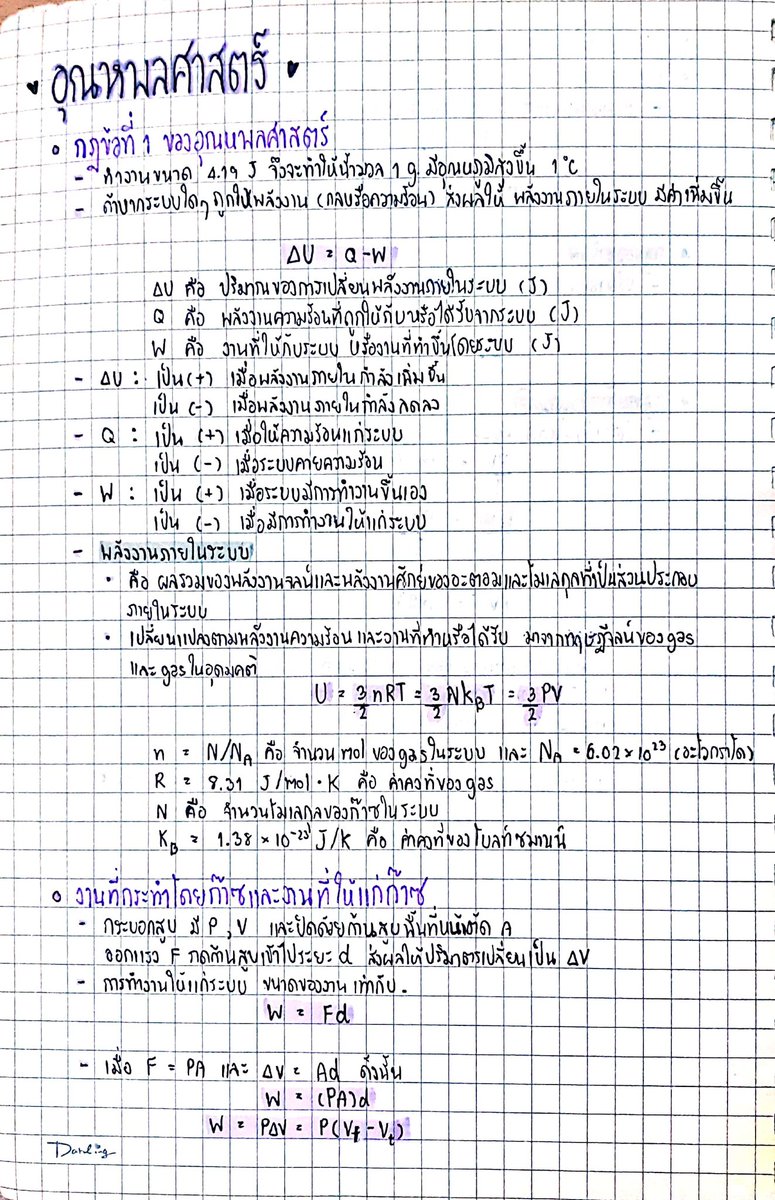 อุณหพลศาสตร์
กฎข้อที่ 1 ของอุณหพลศาสตร์
- ทำงานขนาด 4.19 J จึงจะทำให้น้ำมวล 1 g มีอุณหภูมิสูงขึ้น 1°C
- ถ้าหากระบบใดๆ ถูกให้พลังงาน (กลหรือความร้อน) ส่งผลให้ พลังงานภายในระบบ มีค่าเพิ่มขึ้น
ΔU = Q-W
ΔU คือ ปริมาณของการเปลี่ยนพลังงานภายในระบบ (J)
Q คือ พลังงานความร้อนที่ถูกให้กับหรือได้รับจากระบบ (J)
W คือ งานที่ให้กับระบบ หรืองานที่ทำขึ้นโดยระบบ (J)
- ΔU : เป็น (+) เมื่อพลังงานภายใน กำลังเพิ่มขึ้น
เป็น (-) เมื่อพลังงานภายในกำลังลดลง
- Q : เป็น (+) เมื่อให้ความร้อนแก่ระบบ
เป็น (-) เมื่อระบบคายความร้อน
- W : เป็น (+) เมื่อระบบมีการทำงานขึ้นเอง
เป็น (-) เมื่อมีการทำงานให้แก่ระบบ
- พลังงานภายในระบบ
• คือ ผลรวมของพลังงานจลน์และพลังงานศักย์ของอะตอมและโมเลกุลที่เป็นส่วนประกอบ
ภายในระบบ
• เปลี่ยนแปลงตามพลังงานความร้อน และงานที่ทำหรือได้รับ มาจากทฤษฎีจลน์ของ gas
และ gas ในอุดมคติ
U = 3/2 nRT = 3/2 Nk_BT = 3/2 PV
n = N/N_A คือ จำนวน mol ของ gas ในระบบ และ N_A = 6.02 × 10²³ (อะโวกาโดร)
R = 8.31 J/mol·K คือ ค่าคงที่ของ gas
N คือ จำนวนโมเลกุลของก๊าซในระบบ
K_B = 1.38 × 10⁻²³ J/K คือ ค่าคงที่ของโบลท์ซมานน์
งานที่กระทำโดยก๊าซและงานที่ให้แก่ก๊าซ
- กระบอกสูบ มี P, V และปิดด้วยก้านสูบพื้นที่หน้าตัด A
ออกแรง F กดก้านสูบเข้าไประยะ d ส่งผลให้ปริมาตรเปลี่ยนเป็น ΔV
- การทำงานให้แก่ระบบ ขนาดของงาน เท่ากับ.
W = Fd
- เมื่อ F = PA และ ΔV = Ad ดังนั้น
W = (PA)d
W = PΔV = P(V_f - V_i)
Darling